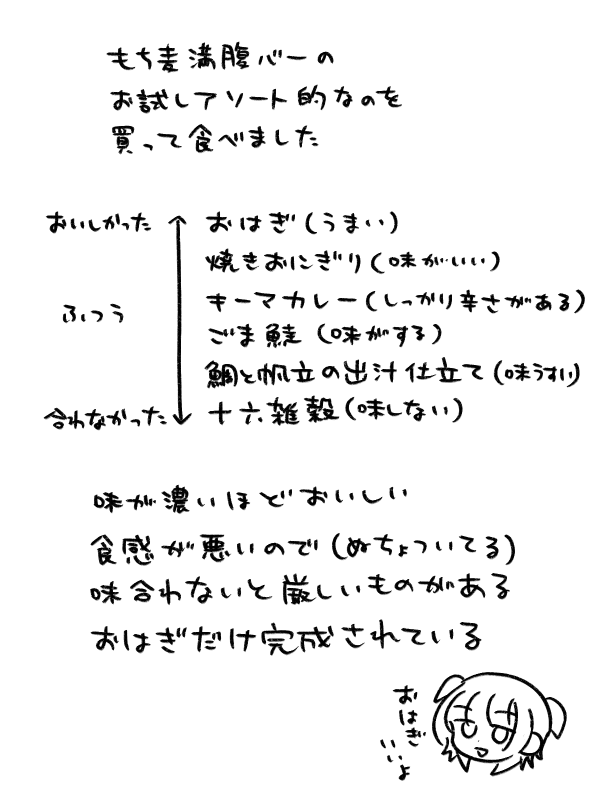 もち麦満腹バーの
お試しアソート的なのを
買って食べました
おいしかった
おはぎ(うまい)
焼きおにぎり(味がいい)
ふつう
キーマカレー(しっかり辛さがある)
ごま鮭(味がする)
鯛と帆立の出汁仕立て(味うすい)
合わなかった
十六雑穀(味しない)
味が濃いほどおいしい
食感が悪いので(ぬちょついてる)
味合わないと厳しいものがある
おはぎだけ完成されている
おはぎ
いいよ